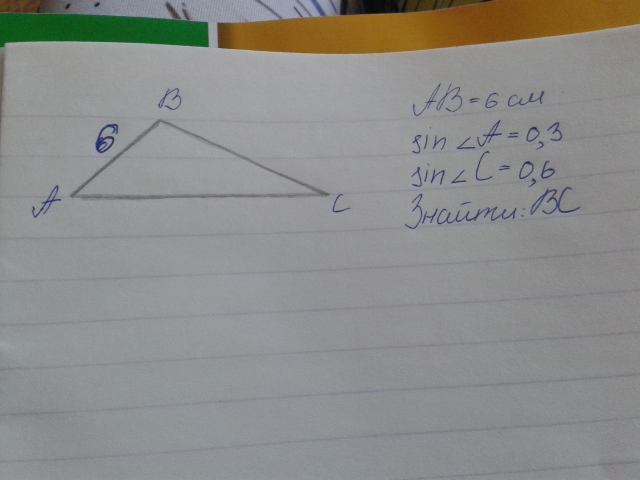 B
6
A
C
AB = 6 см
sin ∠A = 0,3
sin ∠C = 0,6
Знайти: BC